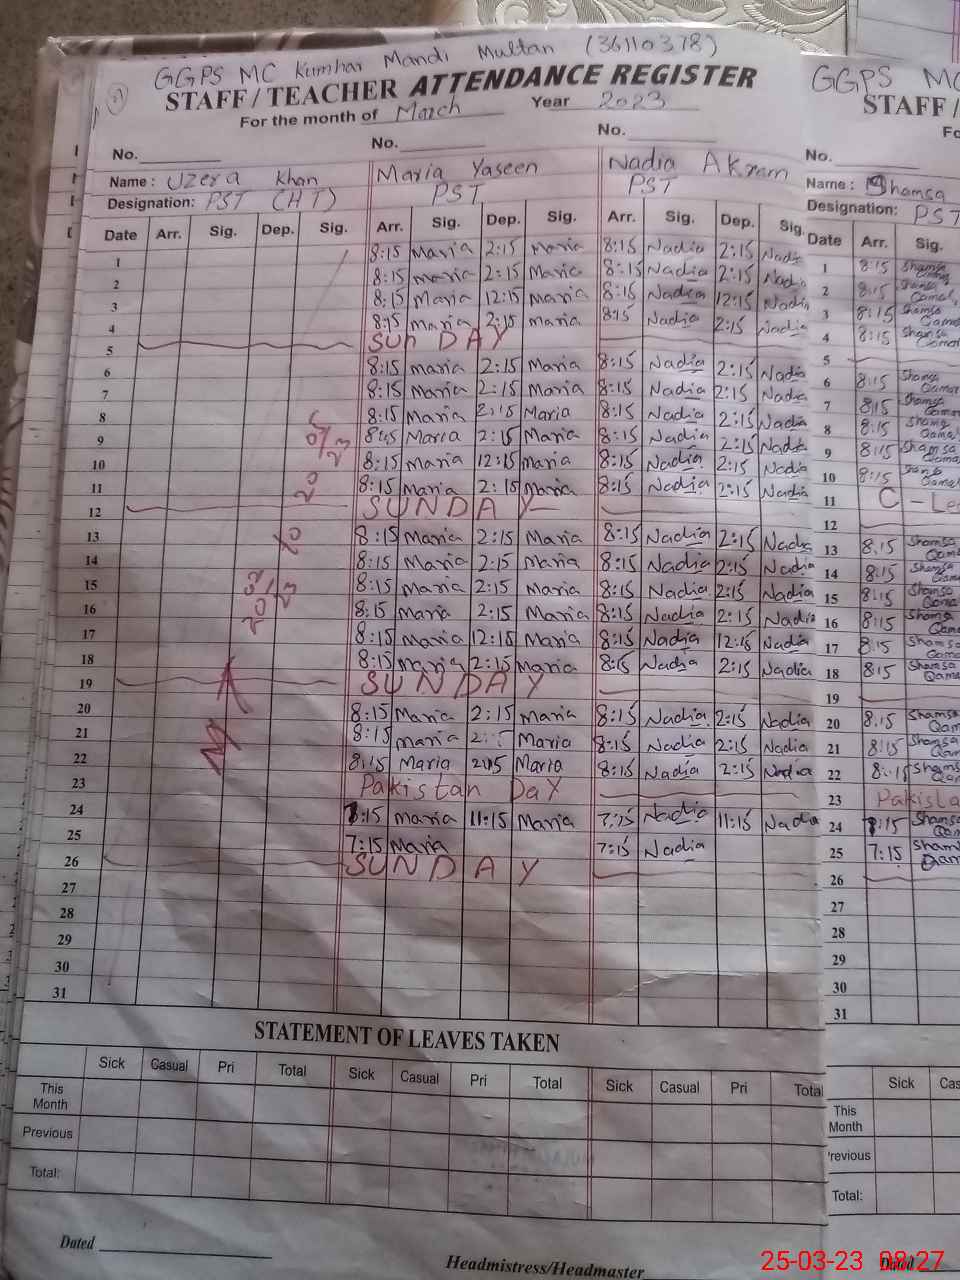 GGPS MC Kumhar Mandi Multan (36110378)
STAFF / TEACHER ATTENDANCE REGISTER
For the month of March Year 2023
No. No. No.
Name : Uzera Khan Maria Yaseen Nadia Akram
Designation: PST (HT) PST PST
Date Arr. Sig. Dep. Sig. Arr. Sig. Dep. Sig. Arr. Sig. Dep. Sig.
1 8:15 Maria 2:15 Maria 8:15 Nadia 2:15 Nadia
2 8:15 Maria 2:15 Maria 8:15 Nadia 2:15 Nadia
3 8:15 Maria 12:15 Maria 8:15 Nadia 12:15 Nadia
4 8:15 Maria 2:15 Maria 8:15 Nadia 2:15 Nadia
5 SUN DAY
6 8:15 Maria 2:15 Maria 8:15 Nadia 2:15 Nadia
7 8:15 Maria 2:15 Maria 8:15 Nadia 2:15 Nadia
8 8:15 Maria 2:15 Maria 8:15 Nadia 2:15 Nadia
9 Maria 2:15 Maria 8:15 Nadia 2:15 Nadia
10 8:15 Maria 12:15 Maria 8:15 Nadia 2:15 Nadia
11 8:15 Maria 2:15 Maria 8:15 Nadia 2:15 Nadia
12 SUNDAY
13 8:15 Maria 2:15 Maria 8:15 Nadia 2:15 Nadia
14 8:15 Maria 2:15 Maria 8:15 Nadia 2:15 Nadia
15 8:15 Maria 2:15 Maria 8:15 Nadia 2:15 Nadia
16 8:15 Maria 2:15 Maria 8:15 Nadia 2:15 Nadia
17 8:15 Maria 12:15 Maria 8:15 Nadia 12:15 Nadia
18 8:15 Maria 2:15 Maria 8:15 Nadia 2:15 Nadia
19 SUNDAY
20 8:15 Maria 2:15 Maria 8:15 Nadia 2:15 Nadia
21 8:15 Maria Maria 8:15 Nadia 2:15 Nadia
22 8:15 Maria 2:15 Maria 8:15 Nadia 2:15 Nadia
23 Pakistan Day
24 7:15 Maria 11:15 Maria 7:15 Nadia 11:15 Nadia
25 7:15 Maria 7:15 Nadia
26 SUNDAY
27
28
29
30
31
STATEMENT OF LEAVES TAKEN
Sick Casual Pri Total Sick Casual Pri Total Sick Casual Pri Total
This Month
Previous
Total:
Dated
Headmistress/Headmaster
GGPS MC
STAFF /
No.
Name : Shamsa
Designation: PST
Date Arr. Sig.
1 8:15 Shamsa Qamar
2 8:15 Shamsa Qamar
3 8:15 Shamsa Qamar
4 8:15 Shamsa Qamar
5
6 8:15 Shamsa Qamar
7 8:15 Shamsa Qamar
8 8:15 Shamsa Qamar
9 8:15 Shamsa Qamar
10 8:15 Qamar
11 C - Le
12
13 8:15 Shamsa Qam
14 8:15 Shamsa Qam
15 8:15 Shamsa Qam
16 8:15 Shamsa Qam
17 8:15 Shamsa Qama
18 8:15 Shamsa Qama
19
20 8:15 Shamsa Qam
21 8:15 Shamsa Qam
22 8:15 Shams Qam
23 Pakista
24 7:15 Shamsa Qam
25 7:15 Sham Qam
26
27
28
29
30
31
Sick Cas
This Month
revious
Total:
Dated
25-03-23 08:27